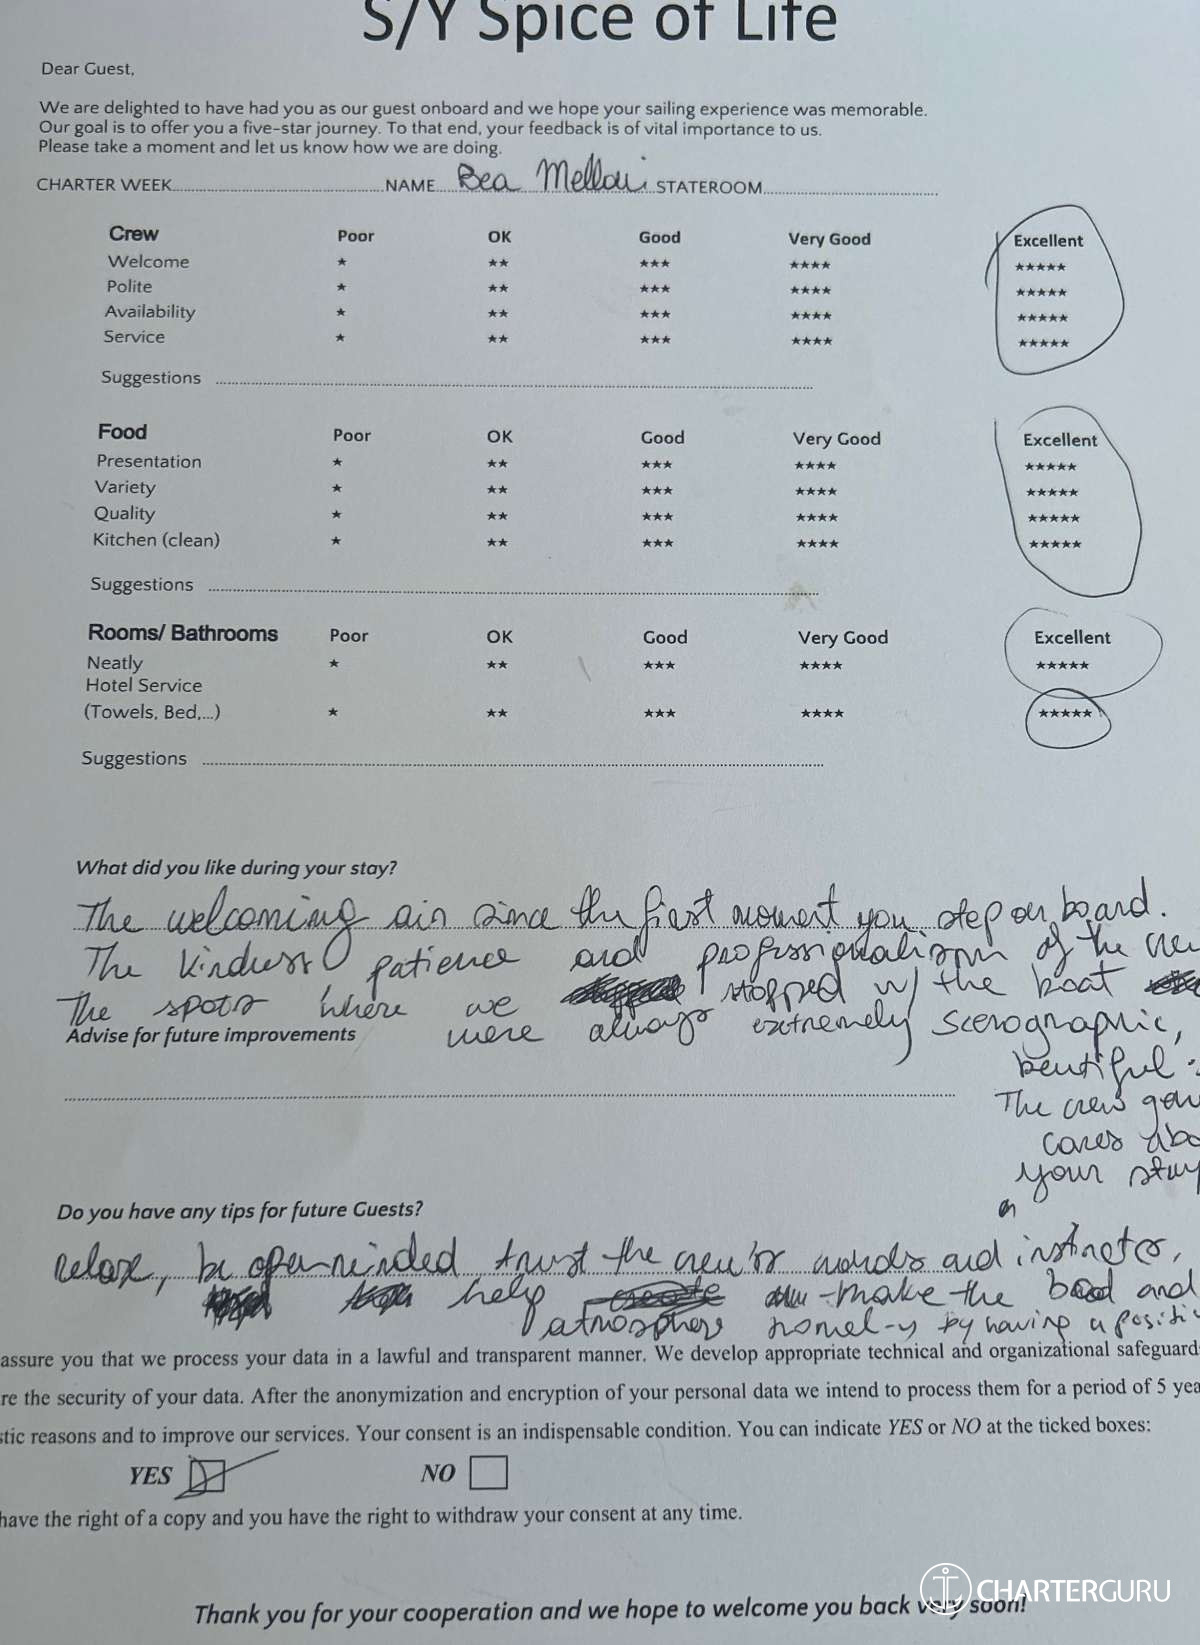 S/Y Spice of Life
Dear Guest,
We are delighted to have had you as our guest onboard and we hope your sailing experience was memorable.
Our goal is to offer you a five-star journey. To that end, your feedback is of vital importance to us.
Please take a moment and let us know how we are doing.
CHARTER WEEK NAME Bea STATEROOM
Crew Poor OK Good Very Good Excellent
Welcome ★ ★★ ★★★ ★★★★ ★★★★★
Polite ★ ★★ ★★★ ★★★★ ★★★★★
Availability ★ ★★ ★★★ ★★★★ ★★★★★
Service ★ ★★ ★★★ ★★★★ ★★★★★
Suggestions
Food Poor OK Good Very Good Excellent
Presentation ★ ★★ ★★★ ★★★★ ★★★★★
Variety ★ ★★ ★★★ ★★★★ ★★★★★
Quality ★ ★★ ★★★ ★★★★ ★★★★★
Kitchen (clean) ★ ★★ ★★★ ★★★★ ★★★★★
Suggestions
Rooms/ Bathrooms Poor OK Good Very Good Excellent
Neatly ★ ★★ ★★★ ★★★★ ★★★★★
Hotel Service
(Towels, Bed,...) ★ ★★ ★★★ ★★★★ ★★★★★
Suggestions
What did you like during your stay?
The welcoming air since the first moment you step on board.
The kindness patience and professionalism of the crew
The spots where we stopped w/ the boat
were always extremely scenographic,
beautiful.
The crew
cares abo
your stay
Advise for future improvements
Do you have any tips for future Guests?
relax, be open-minded trust the crew's words and
help make the and
atmosphere homel-y by having a positiv
assure you that we process your data in a lawful and transparent manner. We develop appropriate technical and organizational safeguard
re the security of your data. After the anonymization and encryption of your personal data we intend to process them for a period of 5 yea
stic reasons and to improve our services. Your consent is an indispensable condition. You can indicate YES or NO at the ticked boxes:
YES NO
have the right of a copy and you have the right to withdraw your consent at any time.
CHARTERGURU
Thank you for your cooperation and we hope to welcome you back very soon!